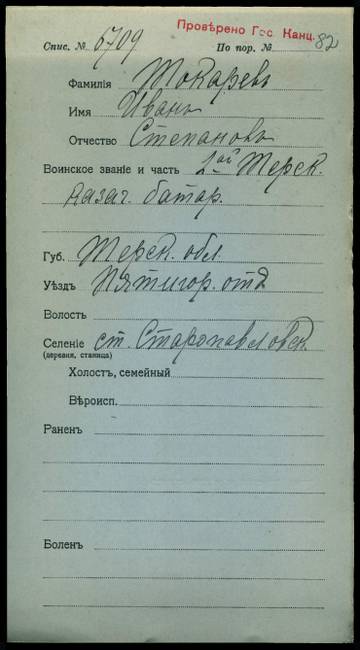 Провѣрено Гос. Канц.
Спис. № 6709 По пор. № 82
Фамилія Токаревъ
Имя Иванъ
Отчество Степановъ
Воинское званіе и часть 1ой Терск.
казач. батар.
Губ. Терск. обл.
Уѣздъ Пятигор. отд.
Волость
Селеніе ст. Старопавловск.
(деревня, станица)
Холостъ, семейный
Вѣроисп.
Раненъ
Боленъ